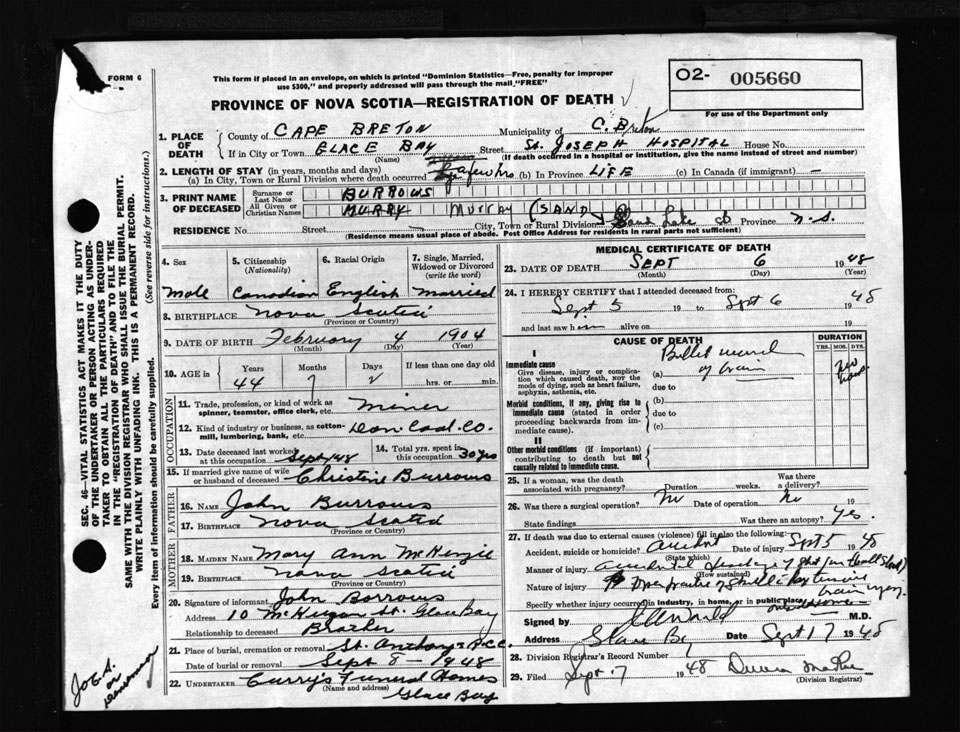 FORM 6
This form if placed in an envelope, on which is printed "Dominion Statistics—Free, penalty for improper
use $300," and properly addressed will pass through the mail "FREE"
PROVINCE OF NOVA SCOTIA—REGISTRATION OF DEATH
O2- 005660
For use of the Department only
1. PLACE OF DEATH
County of CAPE BRETON Municipality of C. Breton
If in City or Town GLACE BAY Street St. JOSEPH HOSPITAL House No.
(Name) (If death occurred in a hospital or institution, give the name instead of street and number)
2. LENGTH OF STAY (in years, months and days)
(a) In City, Town or Rural Division where death occurred a few hrs (b) In Province LIFE (c) In Canada (if immigrant) —
3. PRINT NAME OF DECEASED
Surname or Last Name BURROWS
All Given or Christian Names MURRY MURRAY (SAND
RESIDENCE No. Street City, Town or Rural Division Sand Lake Province N.S.
(Residence means usual place of abode. Post Office Address for residents in rural parts not sufficient)
4. Sex 5. Citizenship (Nationality) 6. Racial Origin 7. Single, Married, Widowed or Divorced (write the word)
Male Canadian English Married
8. BIRTHPLACE Nova Scotia
(Province or Country)
9. DATE OF BIRTH February 4 1904
(Month) (Day) (Year)
10. AGE in Years Months Days If less than one day
44 7 2 hrs. or min.
OCCUPATION
11. Trade, profession, or kind of work as spinner, teamster, office clerk, etc. Miner
12. Kind of industry or business, as cotton-mill, lumbering, bank, etc. Dom Coal Co.
13. Date deceased last worked at this occupation Sept/48
14. Total yrs. spent in this occupation 30 yrs
15. If married give name of wife or husband of deceased Christine Burrows
FATHER
16. NAME John Burrows
17. BIRTHPLACE Nova Scotia
(Province or Country)
MOTHER
18. MAIDEN NAME Mary Ann McKenzie
19. BIRTHPLACE Nova Scotia
(Province or Country)
20. Signature of informant John Borrows
Address 10 McKeigan St. Glace Bay
Relationship to deceased Brother
21. Place of burial, cremation or removal St. Anthonys
Date of burial or removal Sept 8 - 1948
22. UNDERTAKER Curry's Funeral Homes
(Name and address) Glace Bay
MEDICAL CERTIFICATE OF DEATH
23. DATE OF DEATH SEPT 6 1948
(Month) (Day) (Year)
24. I HEREBY CERTIFY that I attended deceased from:
Sept 5 19 to Sept 6 1948
and last saw him alive on 19
CAUSE OF DEATH
DURATION
YRS. MOS. DYS.
I
Immediate cause
Give disease, injury or complication which caused death, NOT the mode of dying, such as heart failure, asphyxia, asthenia, etc.
(a) Bullet wound of brain
few hours
due to
Morbid conditions, if any, giving rise to immediate cause (stated in order proceeding backwards from immediate cause).
(b)
due to
(c)
II
Other morbid conditions (if important) contributing to death but not causally related to immediate cause.
25. If a woman, was the death associated with pregnancy? Duration weeks. Was there a delivery?
26. Was there a surgical operation? No Date of operation No 19
State findings Was there an autopsy? Yes.
27. If death was due to external causes (violence) fill in also the following:
Accident, suicide or homicide? Accident Date of injury Sept 5 1948
(State which)
Manner of injury accidental discharge of shot gun
(How sustained)
Nature of injury fracture of skull & extensive brain injury
Specify whether injury occurred in industry, in home, or in public place
Signed by M.D.
Address Glace Bay Date Sept 17 1948
28. Division Registrar's Record Number
29. Filed Sept. 7 1948
(Division Registrar)
SEC. 46—VITAL STATISTICS ACT MAKES IT THE DUTY
OF THE UNDERTAKER OR PERSON ACTING AS UNDER-
TAKER TO OBTAIN ALL THE PARTICULARS REQUIRED
IN THE "REGISTRATION OF DEATH" AND TO FILE THE
SAME WITH THE DIVISION REGISTRAR WHO SHALL ISSUE THE BURIAL PERMIT.
WRITE PLAINLY WITH UNFADING INK. THIS IS A PERMANENT RECORD.
Every item of information should be carefully supplied. (See reverse side for instructions.)